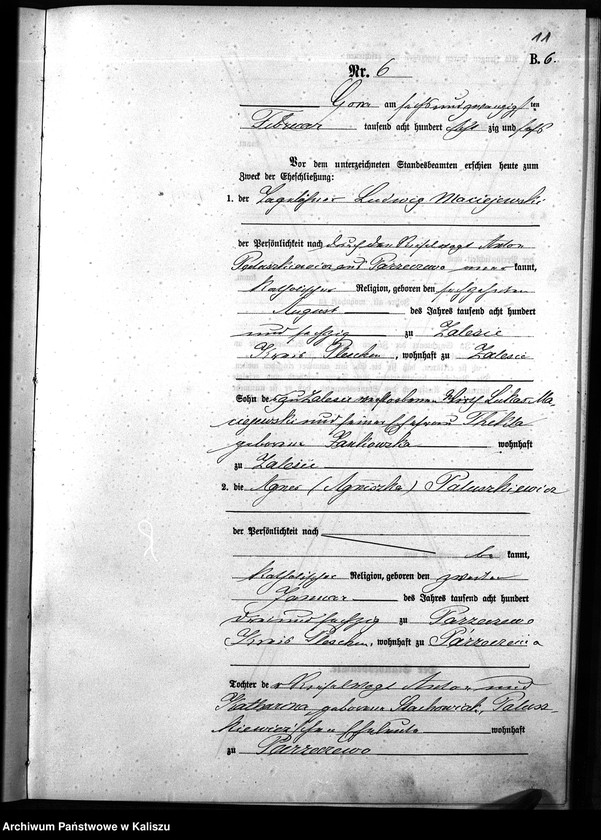 11
B. 6.
Nr. 6
Gora am sechsundzwanzigsten
Februar tausend acht hundert achtzig und sechs
Vor dem unterzeichneten Standesbeamten erschien heute zum
Zweck der Eheschließung:
1. der Tagelöhner Ludwig Maciejewski
der Persönlichkeit nach durch den Anton
Paluszkiewicz aus Parzeczewo kannt,
katholischer Religion, geboren den
August des Jahres tausend acht hundert
und sechzig zu Zalesie
Kreis Pleschen, wohnhaft zu Zalesie
Sohn des zu Zalesie verstorbenen Lukas Ma-
ciejewski und seiner Ehefrau Thekla
geborene Karkowska wohnhaft
zu Zalesie
2. die Agnes (Agnieszka) Paluszkiewicz
der Persönlichkeit nach
be kannt,
katholischer Religion, geboren den zweiten
Januar des Jahres tausend acht hundert
dreiundsechzig zu Parzeczewo
Kreis Pleschen, wohnhaft zu Parzeczewo
Tochter der Anton und
Katharina geborene Stachowiak, Palusz-
kiewicz'schen Eheleute wohnhaft
zu Parzeczewo
Archiwum Państwowe w Kaliszu